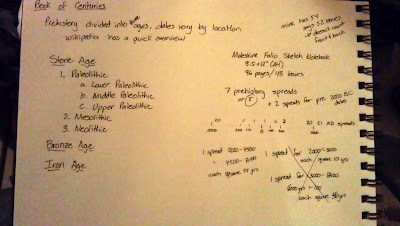 Book of Centuries
Prehistory divided into ages, dates vary by location
wikipedia has a quick overview
mine has 54
amy's 52 leaves
doesn't count
front & back
Stone Age
1. Paleolithic
a. Lower Paleolithic
b. Middle Paleolithic
c. Upper Paleolithic
2. Mesolithic
3. Neolithic
Bronze Age
Iron Age
Moleskine Folio Sketch Notebook
8.5 x 12" (A4)
96 pages / 48 leaves
7 prehistory spreads
or 5
+ 2 spreads for pre 2000 BC
dates
20 21 AD spreads
1 spread 2000-4500
4500-7000
each square 25 yrs
1 spread for 2000-3000
each square 10 yrs
1 spread for 3000-
each square